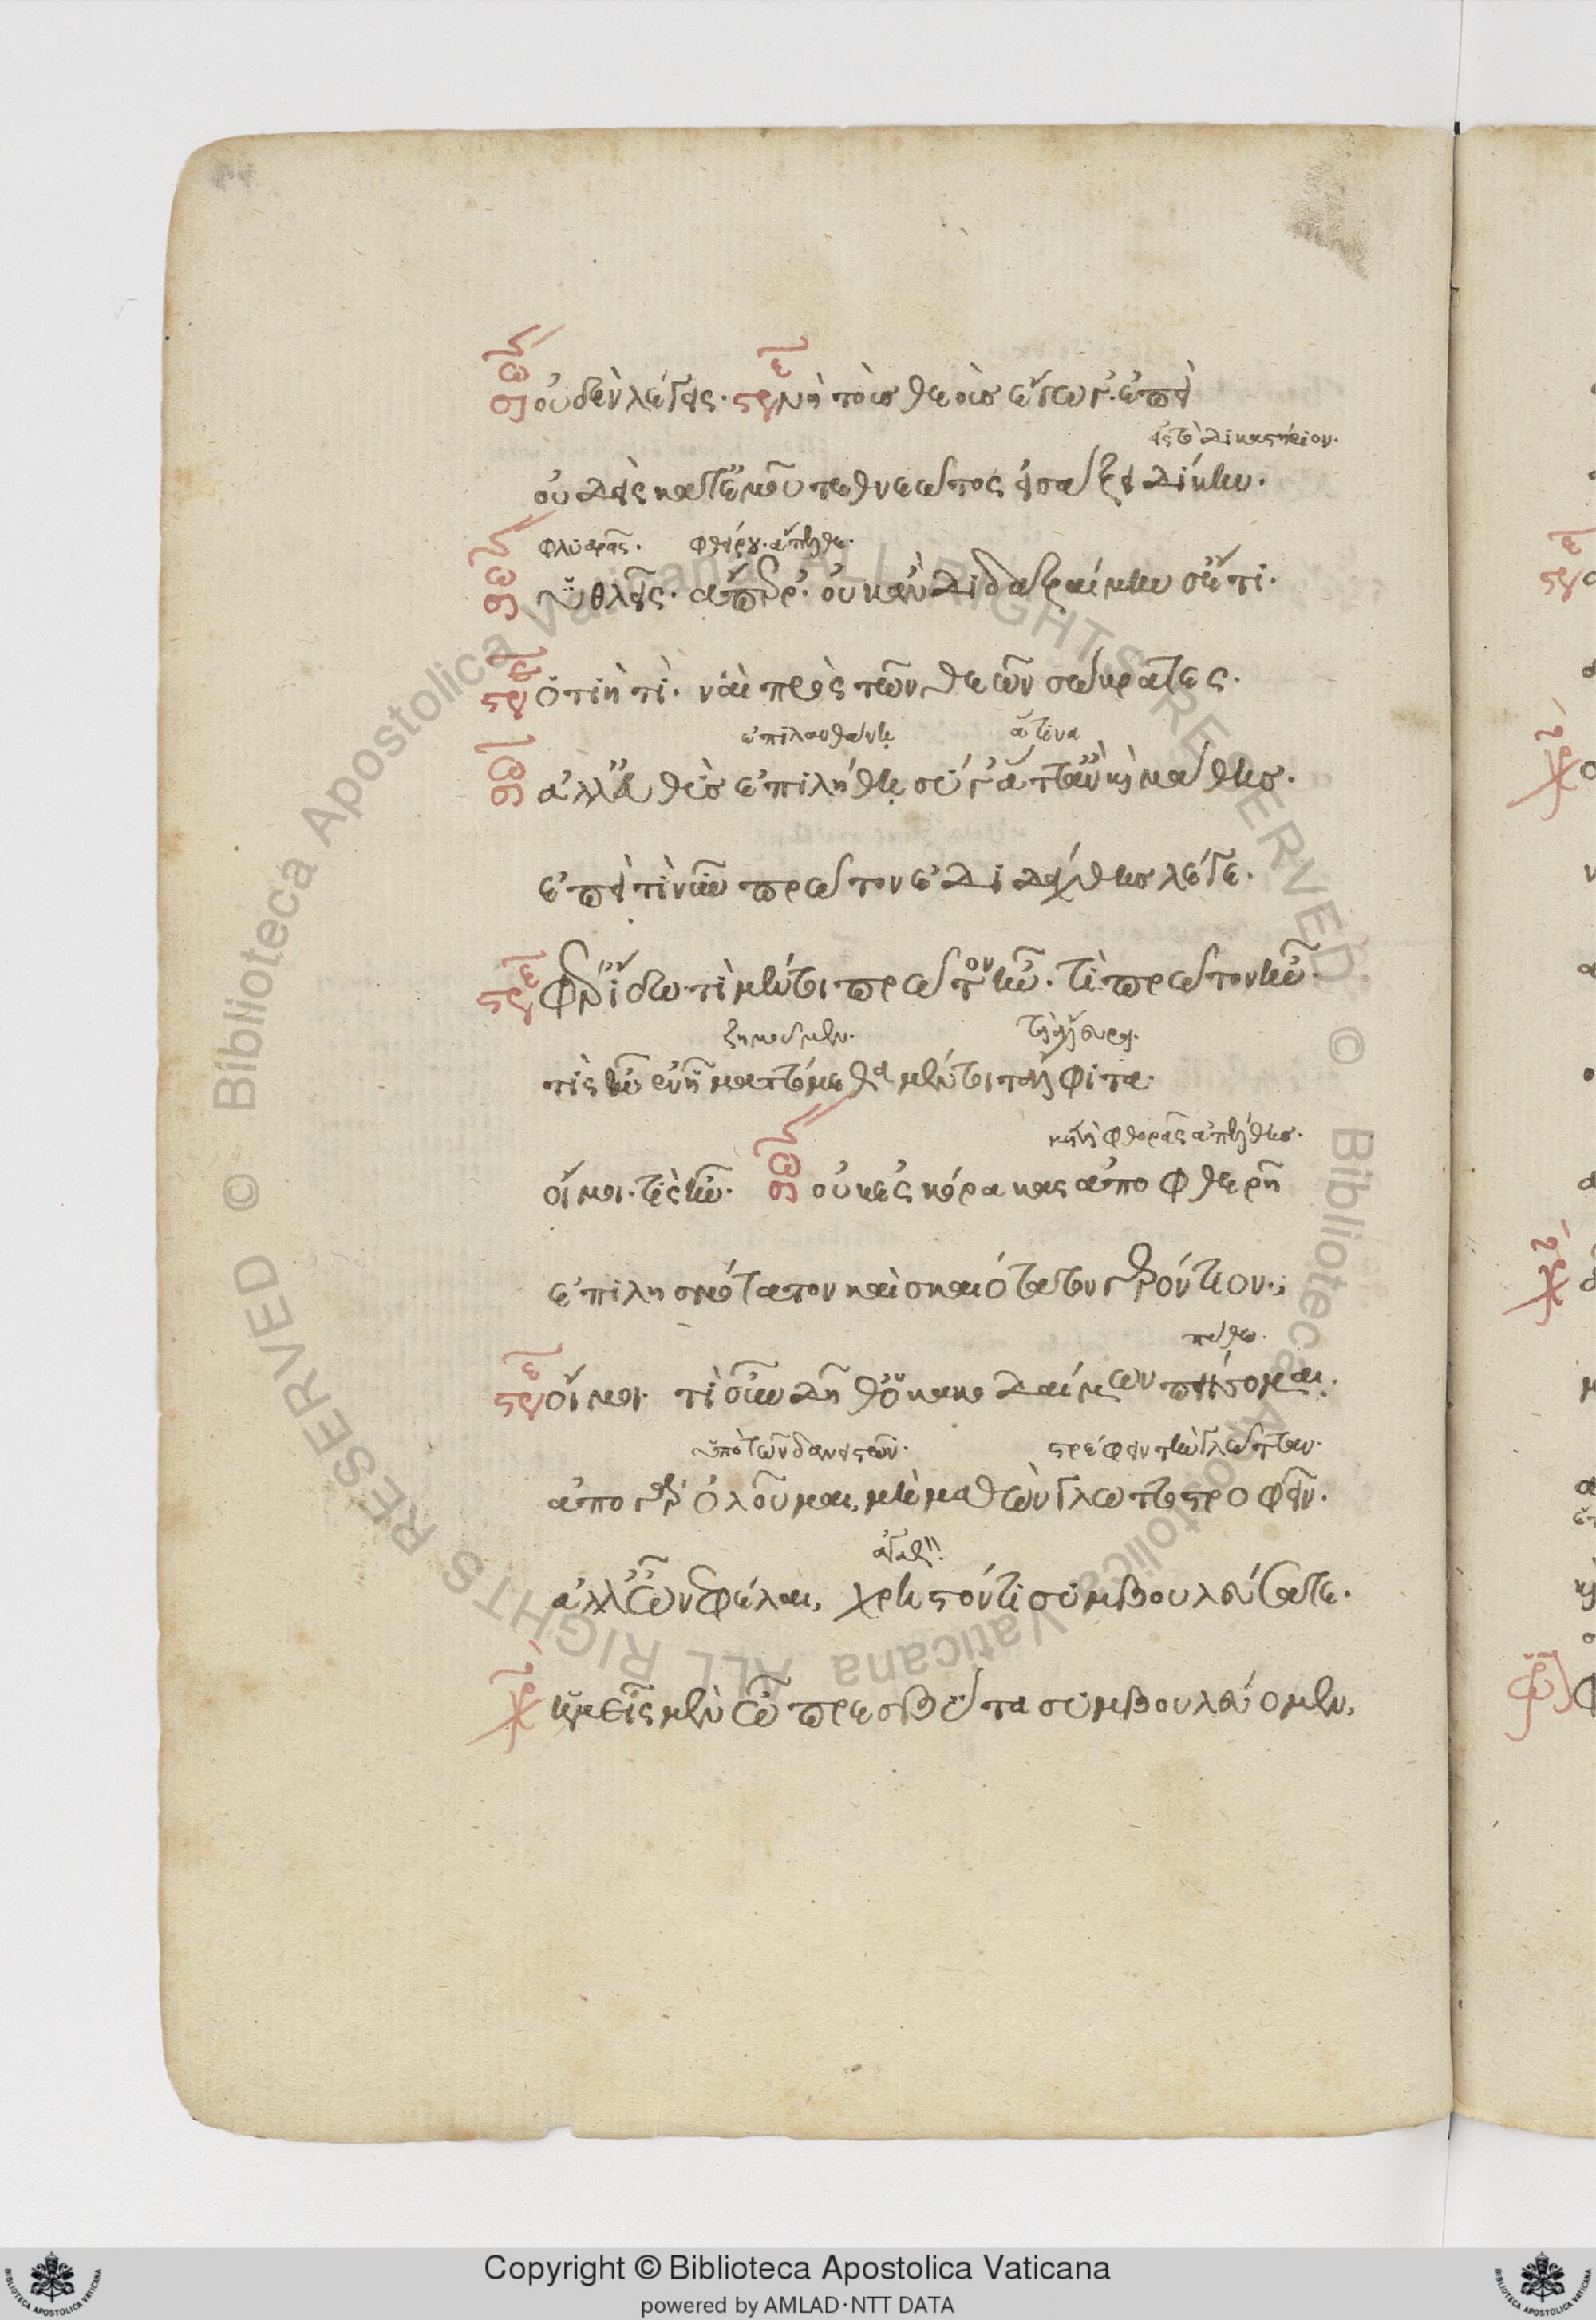 σω οὐδὲν λέγεις. στρε νὴ τοὺς θεοὺς ἔγωγ'. ἐπεὶ
εἰς τὸ δικαστήριον.
οὐδεὶς κατ' ἐμοῦ τεθνεῶτος εἰσάξει δίκην.
φλυαρεῖς. φθείρου. ἄπελθε.
σω ὑθλεῖς. ἄπερρ'. οὐκ ἂν διδαξαίμην σ' ἔτι.
στρε ὁτιὴ τί. ναὶ πρὸς τῶν θεῶν σώκρατες.
ἐπιλανθάνῃ ἅτινα
σω ἀλλ' εὐθὺς ἐπιλήθῃ σύ γ' ἅττ' ἂν καὶ μάθῃς.
ἐπεὶ τί νῦν πρῶτον ἐδιδάχθης λέγε.
στρε φέρ' ἴδω τί μέντοι πρῶτον ἦν. τί πρῶτον ἦν.
τίς ἦν ἐν ᾗ ματτόμεθα μέντοι τἄλφιτα.
καὶ μετὰ φθορᾶς ἀπελεύσῃ.
οἴμοι. τίς ἦν. σω οὐκ ἐς κόρακας ἀποφθερῇ
ἐπιλησμότατον καὶ σκαιότατον γερόντιον.
πάθω.
στρε οἴμοι. τί οὖν δῆθ' ὁ κακοδαίμων πείσομαι.
ὑπὸ τῶν δανειστῶν. στρέφειν τὴν γλῶτταν.
ἀπὸ γὰρ ὀλοῦμαι, μὴ μαθὼν γλωττοστροφεῖν.
ἀγαθόν.
ἀλλ' ὦ νεφέλαι, χρηστόν τι συμβουλεύσατε.
χο ἡμεῖς μὲν ὦ πρεσβῦτα συμβουλεύομεν,
Copyright © Biblioteca Apostolica Vaticana
powered by AMLAD·NTT DATA